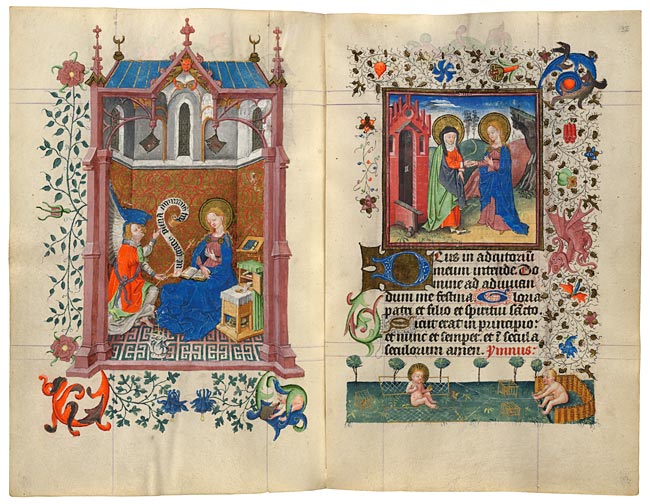 DEus in adiutoriū
meum intende. Do
mine ad adiuuan
dum me festina Gloria
patri et filio et spiritui sc̄to
Sicut erat in principio:
et nunc et semper. et ī secula
seculorum amen. Ymnus: